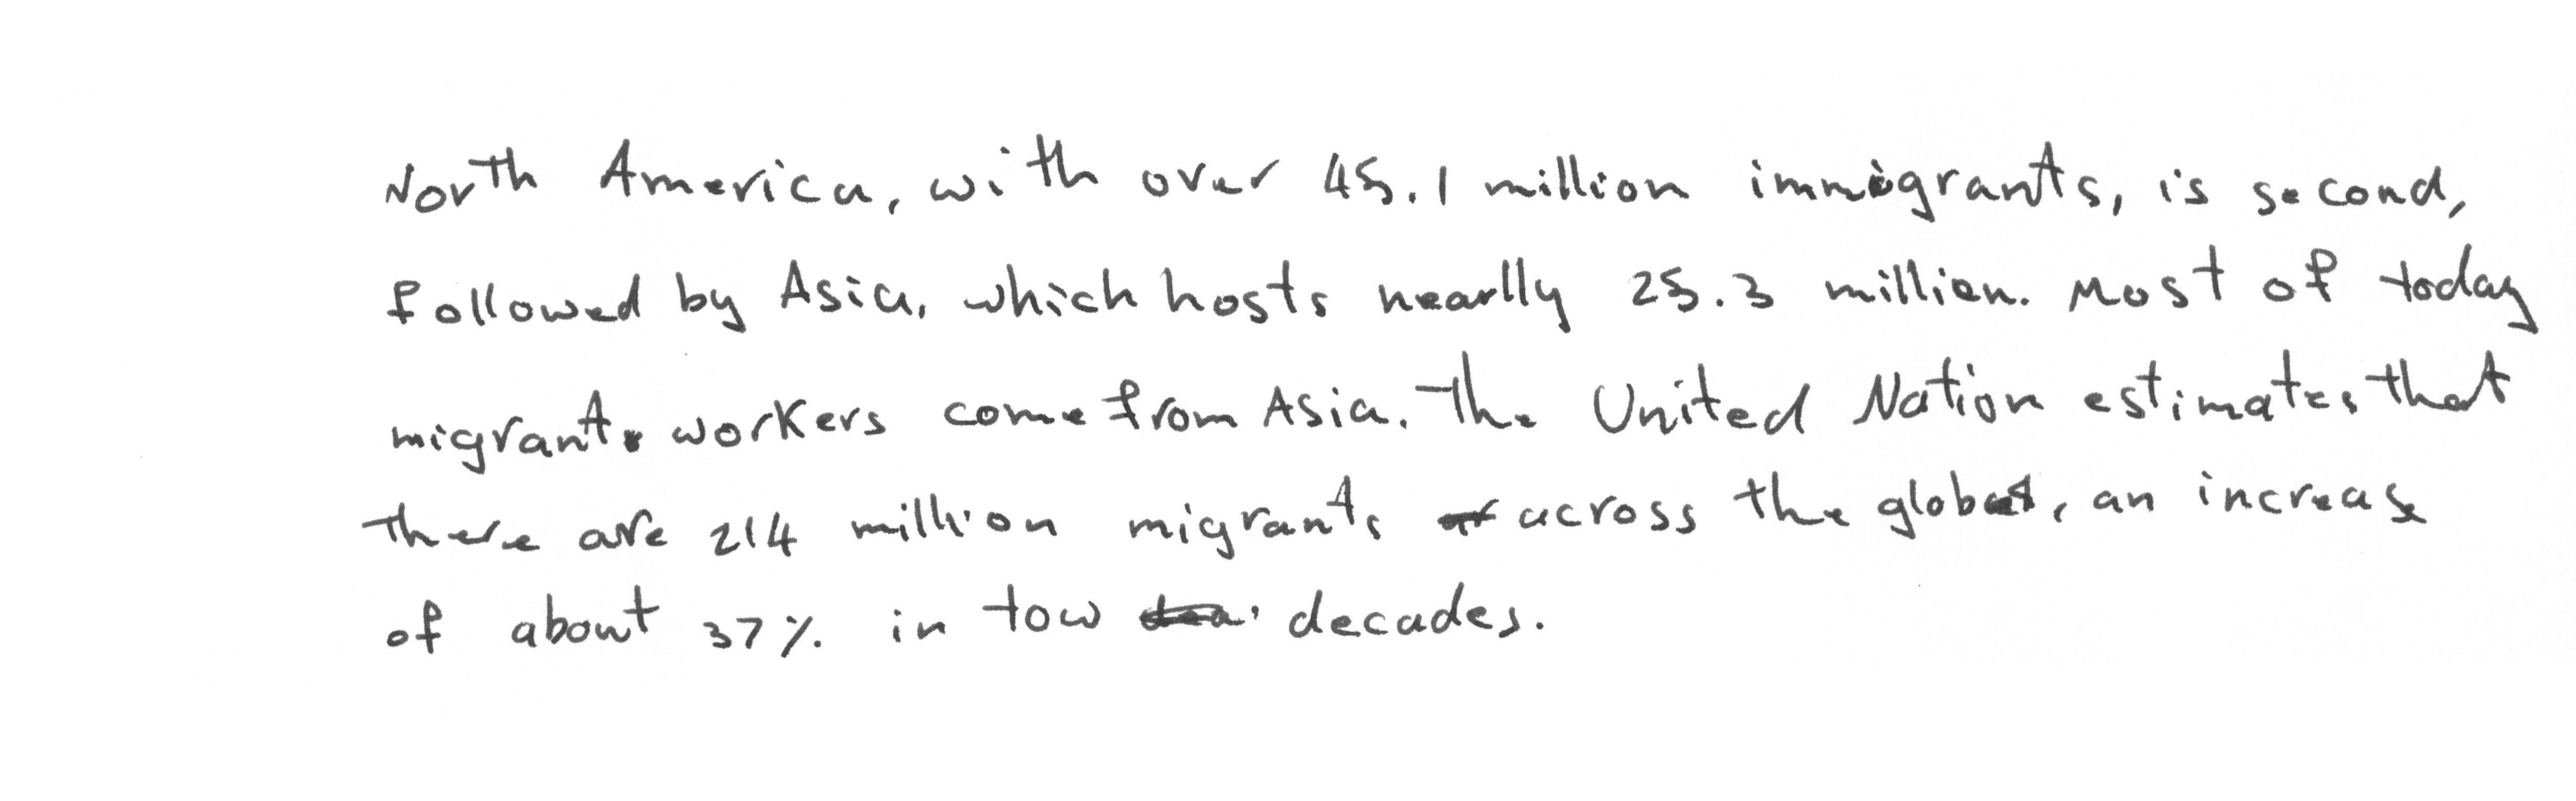 North America, with over 45.1 million immigrants, is second,
followed by Asia, which hosts nearlly 25.3 million. Most of today
migrant workers come from Asia. The United Nation estimates that
there are 214 million migrants across the globe, an increase
of about 37% in tow decades.